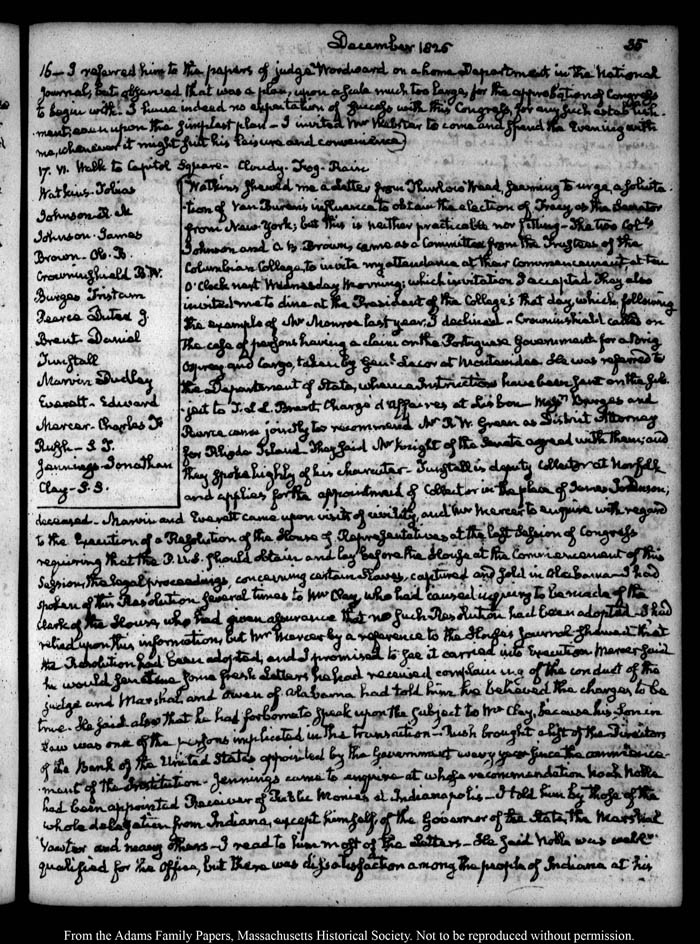 December 1826
35
16— I referred him to the papers of judge Woodward on a home Department in the National
Journal, but observed that was a plan, upon a scale much too large, for the approbation of Congress
to begin with. I have indeed no expectation of success with this Congress, for any such establish-
ment, even upon the simplest plan— I invited Mr Webster to come and spend the Evening with
me, whenever it might suit his leisure and convenience
17. VI. Walk to Capitol Square— Cloudy. Fog. Rain
Watkins. Tobias
Johnson. R. M
Johnson. James
Brown. O. B.
Crowninshield B. W.
Burges Tristam
Pearce Dutee J.
Brent Daniel
Tunstall
Marvin Dudley
Everett. Edward
Mercer. Charles F
Rush— 
Jennings. Jonathan
Clay— 
Watkins shewed me a letter from Thurlow Weed, seeming to urge, a solicita-
tion of Van Buren's influence to obtain the election of Tracy as the Senator
from New-York; but this is neither practicable nor fitting— The two Cols
Johnson and O. B. Brown, came as a Committee from the Trustees of the
Columbian College, to invite my attendance at their Commencement, at ten
O'Clock next Wednesday Morning; which invitation I accepted They also
invited me to dine at the President of the College's that day, which following
the example of Mr Monroe last year, I declined— Crowninshield called on
the case of persons having a claim on the Portuguese Government for a Brig
Osprey and Cargo, taken by Genl Lecor at Montevideo. He was referred to
the Department of State, whence Instructions have been sent on the sub-
ject to T. L. L. Brent, Chargé d'Affaires at Lisbon— Messrs Burges and
Pearce came jointly to recommend Mr R. W. Green as District Attorney
for Rhode Island They said Mr Knight of the Senate agreed with them; and
they spoke highly of his character— Tunstall is deputy Collector at Norfolk
and applies for the appointment of Collector in the place of James Johnson;
deceased— Marvin and Everett came upon visits of civility, and Mr Mercer to enquire with regard
to the Execution of a Resolution of the House of Representatives at the last Session of Congress
requiring that the P. U.S. should obtain and lay before the House at the Commencement of this
Session, the legal proceedings, concerning certain Slaves, captured and sold in Alabama— I had
spoken of this Resolution several times to Mr Clay, who had caused inquiry to be made of the
Clerk of the House, who had given assurance that no such Resolution had been adopted. I had
relied upon this information, but Mr Mercer by a reference to the House's Journal shewed that
the Resolution had been adopted, and I promised to see it carried into Execution. Mercer said
he would send me some fresh Letters he had received complaining of the conduct of the
Judge and Marshal, and Owen of Alabama had told him he believed the charges to be
true. He said also that he had forborne to speak upon the Subject to Mr Clay, because his Son in
Law was one of the persons implicated in the transaction— Rush brought a list of the Directors
of the Bank of the United States appointed by the Government every year since the commence-
ment of the Institution— Jennings came to enquire at whose recommendation Noah Noble
had been appointed Receiver of Public Monies at Indianapolis— I told him by those of the
whole delegation from Indiana, except himself, of the Governor of the State, the Marshal
Vawter and many others— I read to him most of the Letters— He said Noble was well
qualified for the Office, but there was dissatisfaction among the people of Indiana at his
From the Adams Family Papers, Massachusetts Historical Society. Not to be reproduced without permission.